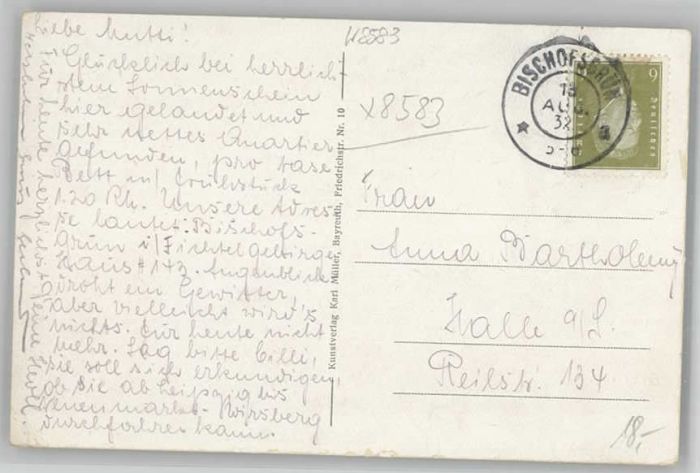 Liebe Mutti!
Glücklich bei herrlich-
stem Sonnenschein
hier gelandet und
sehr nettes Quartier
gefunden, pro Tag
Bett m/ Frühstück
1.20 Rh. Unsere Adres-
se lautet: Bischofs-
grün i/ Fichtelgebirge
Haus # 143. Augenblickl.
droht ein Gewitter,
aber vielleicht wird's
nichts. Für heute nicht
mehr. Sag bitte Cilli,
sie soll sich erkundigen,
ob sie ab Leipzig bis
Neuenmarkt-Wirsberg
durchfahren kann.
Für heute herzlichst
W8583
x8583
Kunstverlag Karl Müller, Bayreuth, Friedrichstr. Nr. 10
BISCHOFSGRÜN
18
AUG.
32
a
9
Deutsches
Frau
Anna Bartholomy
Halle a/S.
Reilstr. 134
18,-